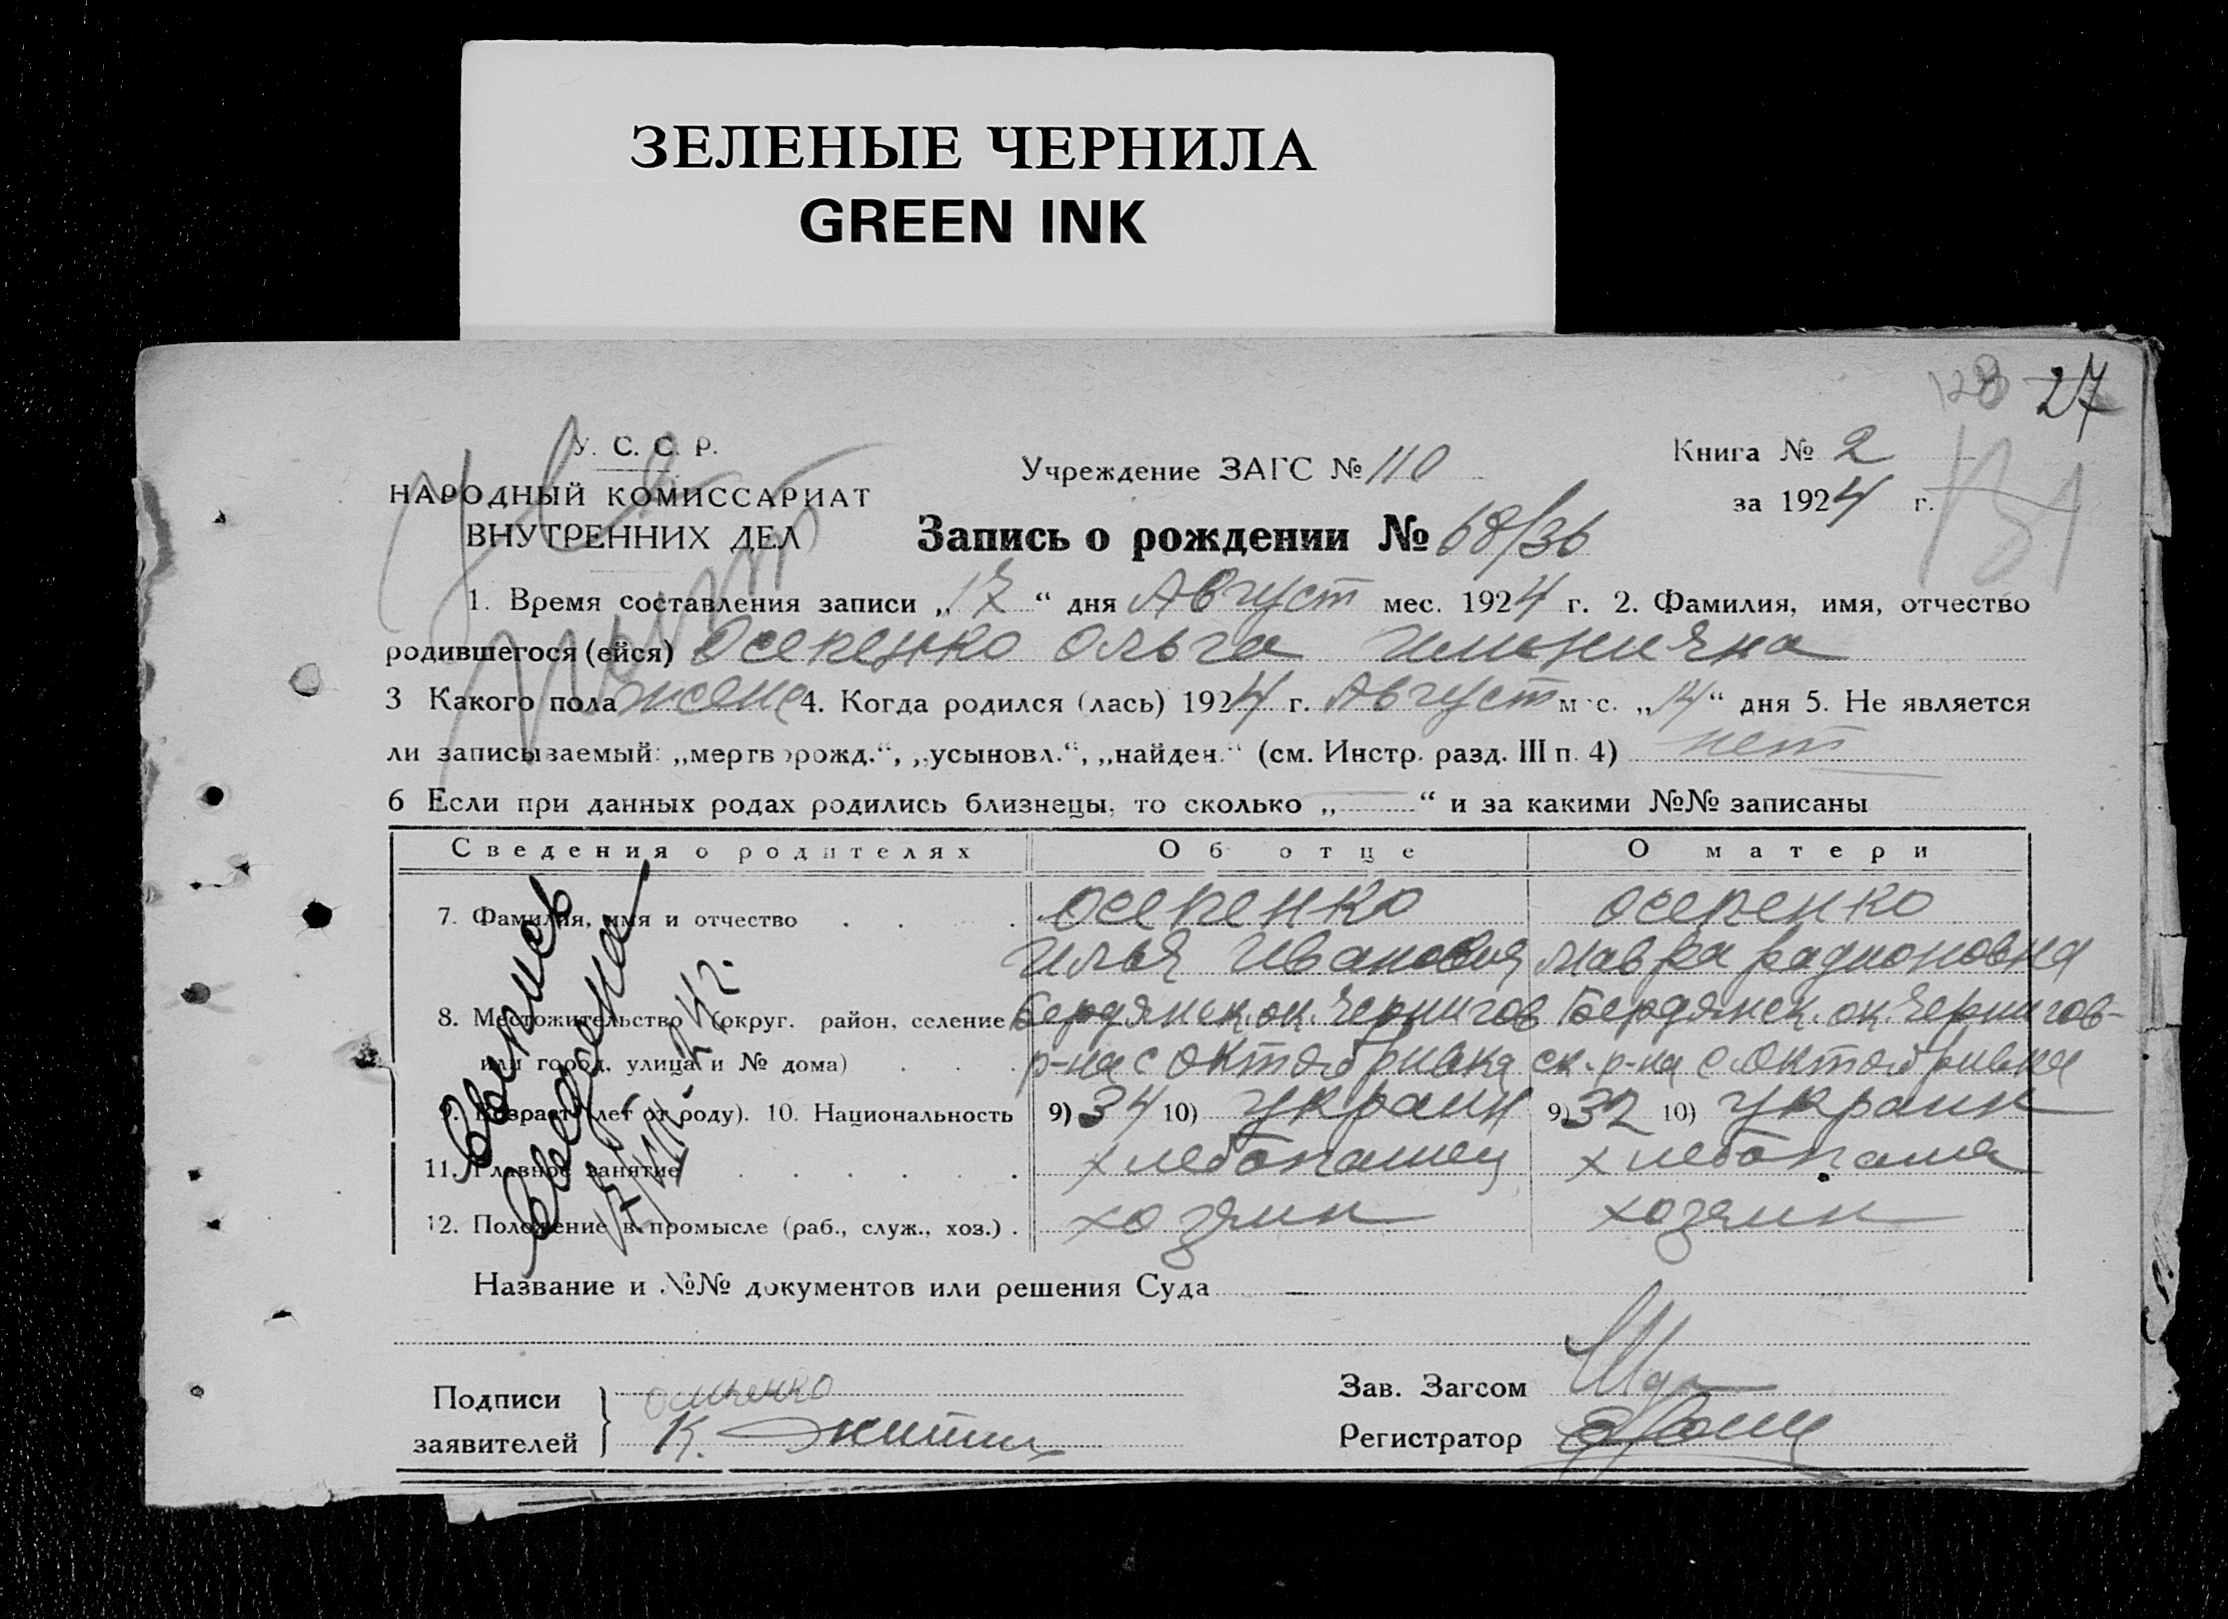 ЗЕЛЕНЫЕ ЧЕРНИЛА
GREEN INK
27
У. С. С. Р.
НАРОДНЫЙ КОМИССАРИАТ
ВНУТРЕННИХ ДЕЛ
Учреждение ЗАГС № 110
Книга № 2
за 1924 г.
Запись о рождении № 68/36
1. Время составления записи „17“ дня Август мес. 1924 г. 2. Фамилия, имя, отчество
родившегося (ейся) Осепенко Ольга
3 Какого пола женс 4. Когда родился (лась) 1924 г. Август мес. „14“ дня 5. Не является
ли записываемый: „мертворожд.“, „усыновл.“, „найден.“ (см. Инстр. разд. III п. 4) нет
6 Если при данных родах родились близнецы, то сколько „—“ и за какими №№ записаны
Сведения о родителях Об отце О матери
7. Фамилия, имя и отчество . . . Осепенко Осепенко
Илья Мавра Радионовна
8. Местожительство (округ. район, селение Бердянск. ок. Чернигов Бердянск. ок. Чернигов-
или город, улица и № дома) . . . р-на с Октябривка ск. р-на с Октябривка
9. Возраст (лет от роду). 10. Национальность 9) 34 10) украин 9) 32 10) украин
11. Главное занятие . . . . . . хлебопашец хлебопаш
12. Положение в промысле (раб., служ., хоз.) . хозяин хозяин
Выпись
выдана
Название и №№ документов или решения Суда —
Подписи
заявителей
Осипенко
К.
Зав. Загсом
Регистратор